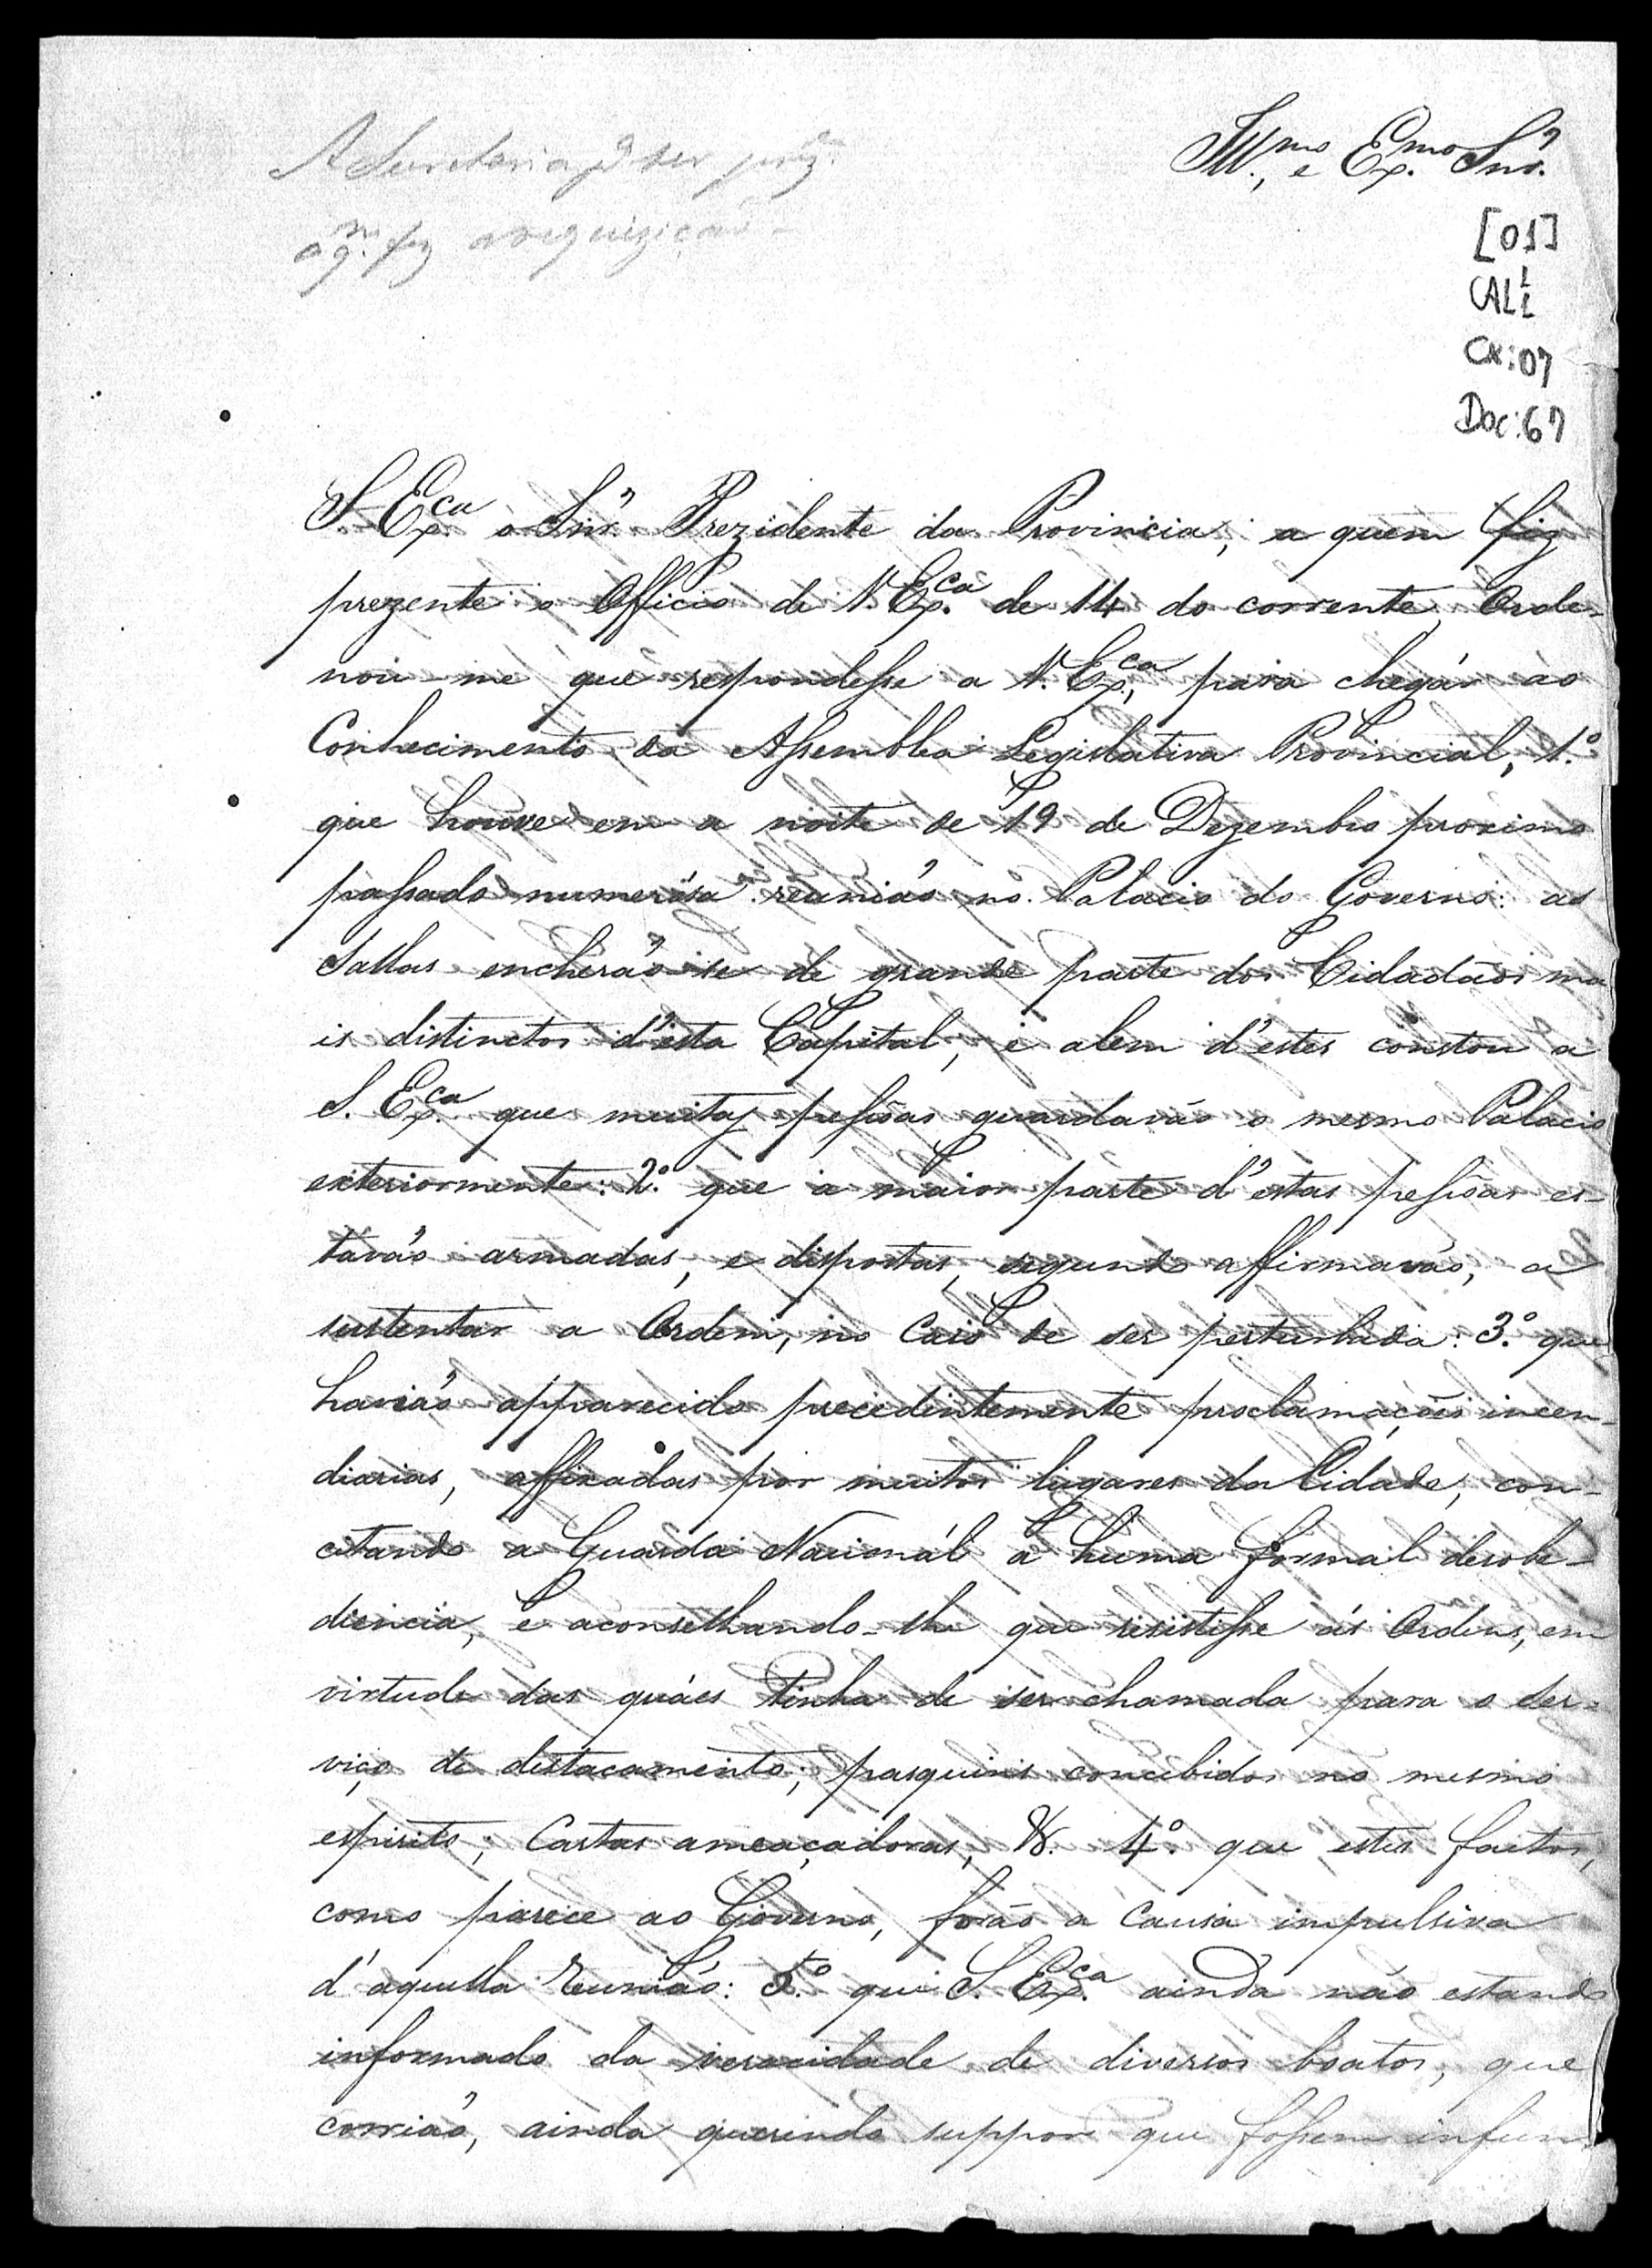 Ill.mo, e Ex.mo Snr.
A Secretaria p.a ser prez.
a q.m fez a requizição
[01]
CALL
CX:07
Doc:67
S. Ex.ca o Snr. Prezidente da Provincia, a quem fiz
prezente o Officio de V. Ex.ca de 14 do corrente, Orde-
nou-me que respondesse a V. Ex.ca, para chegár ao
Conhecimento da Assemblea Legislativa Provincial, 1.o
que houve em a noite de 19 de Dezembro proximo
passado numerósa reunião no Palacio do Governo: as
Sallas encherão-se de grande parte dos Cidadãos ma
is distinctos d'esta Capital, e alem d'estes constou a
S. Ex.ca que muitas pessôas guardavão o mesmo Palacio
exteriormente: 2.o que a maior parte d'estas pessôas es-
tavão armadas, e dispostas, segundo affirmavão, a
sustentar a Ordem, no Caso de ser perturbada: 3.o que
havião apparecido precedentemente proclamações incen-
diarias, affixadas por muitos lugares da Cidade, con-
citando a Guarda Nacionál a huma formal desobe-
diencia, e aconselhando-lhe que resistisse ás Ordens, em
virtude das quáes tinha de ser chamada para o ser-
viço de destacamento; pasquins concebidos no mesmo
espirito; Cartas ameaçadoras, &. 4.o que estes factos,
como parece ao Governo, forão a Causa impulsiva
d'aquella reunião: 5.o que S. Ex.ca ainda não estando
informado da veracidade de diversos boatos, que
corrião, ainda querendo suppor que fossem infun